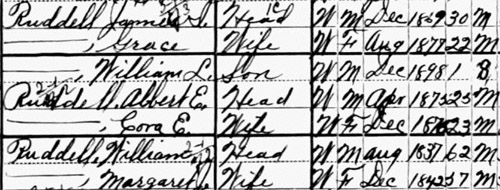 Ruddell James Head W M Dec 1869 30 M
——, Grace Wife W F Aug 1877 22 M
——, William L. Son W M Dec 1898 1 S
Ruddell, Albert E. Head W M Apr 1875 25 M
——, Cora E. Wife W F Dec 23 M
Ruddell, William Head W M Aug 1837 62 M
——, Margaret Wife W F Dec 1842 57 M